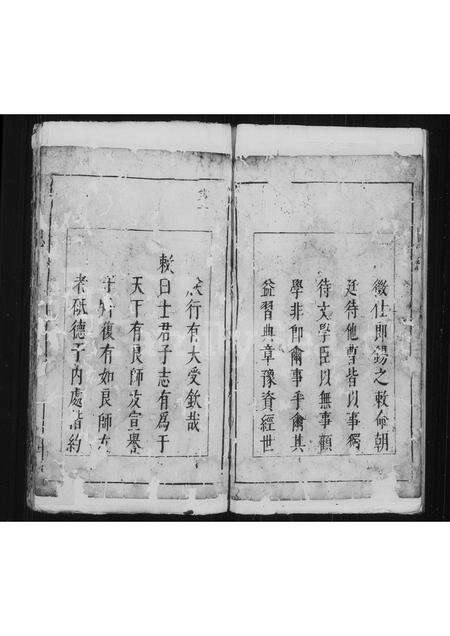 徵仕郎錫之敕命朝
廷待他曹皆以事獨
待文學臣以無事顧
學非卽爾事乎爾其
益習典章豫資經世
行有大受欽哉
敕曰士君子志有爲于
天下有良師友宣譽
于外復有如良師友
者砥德于內處皆約